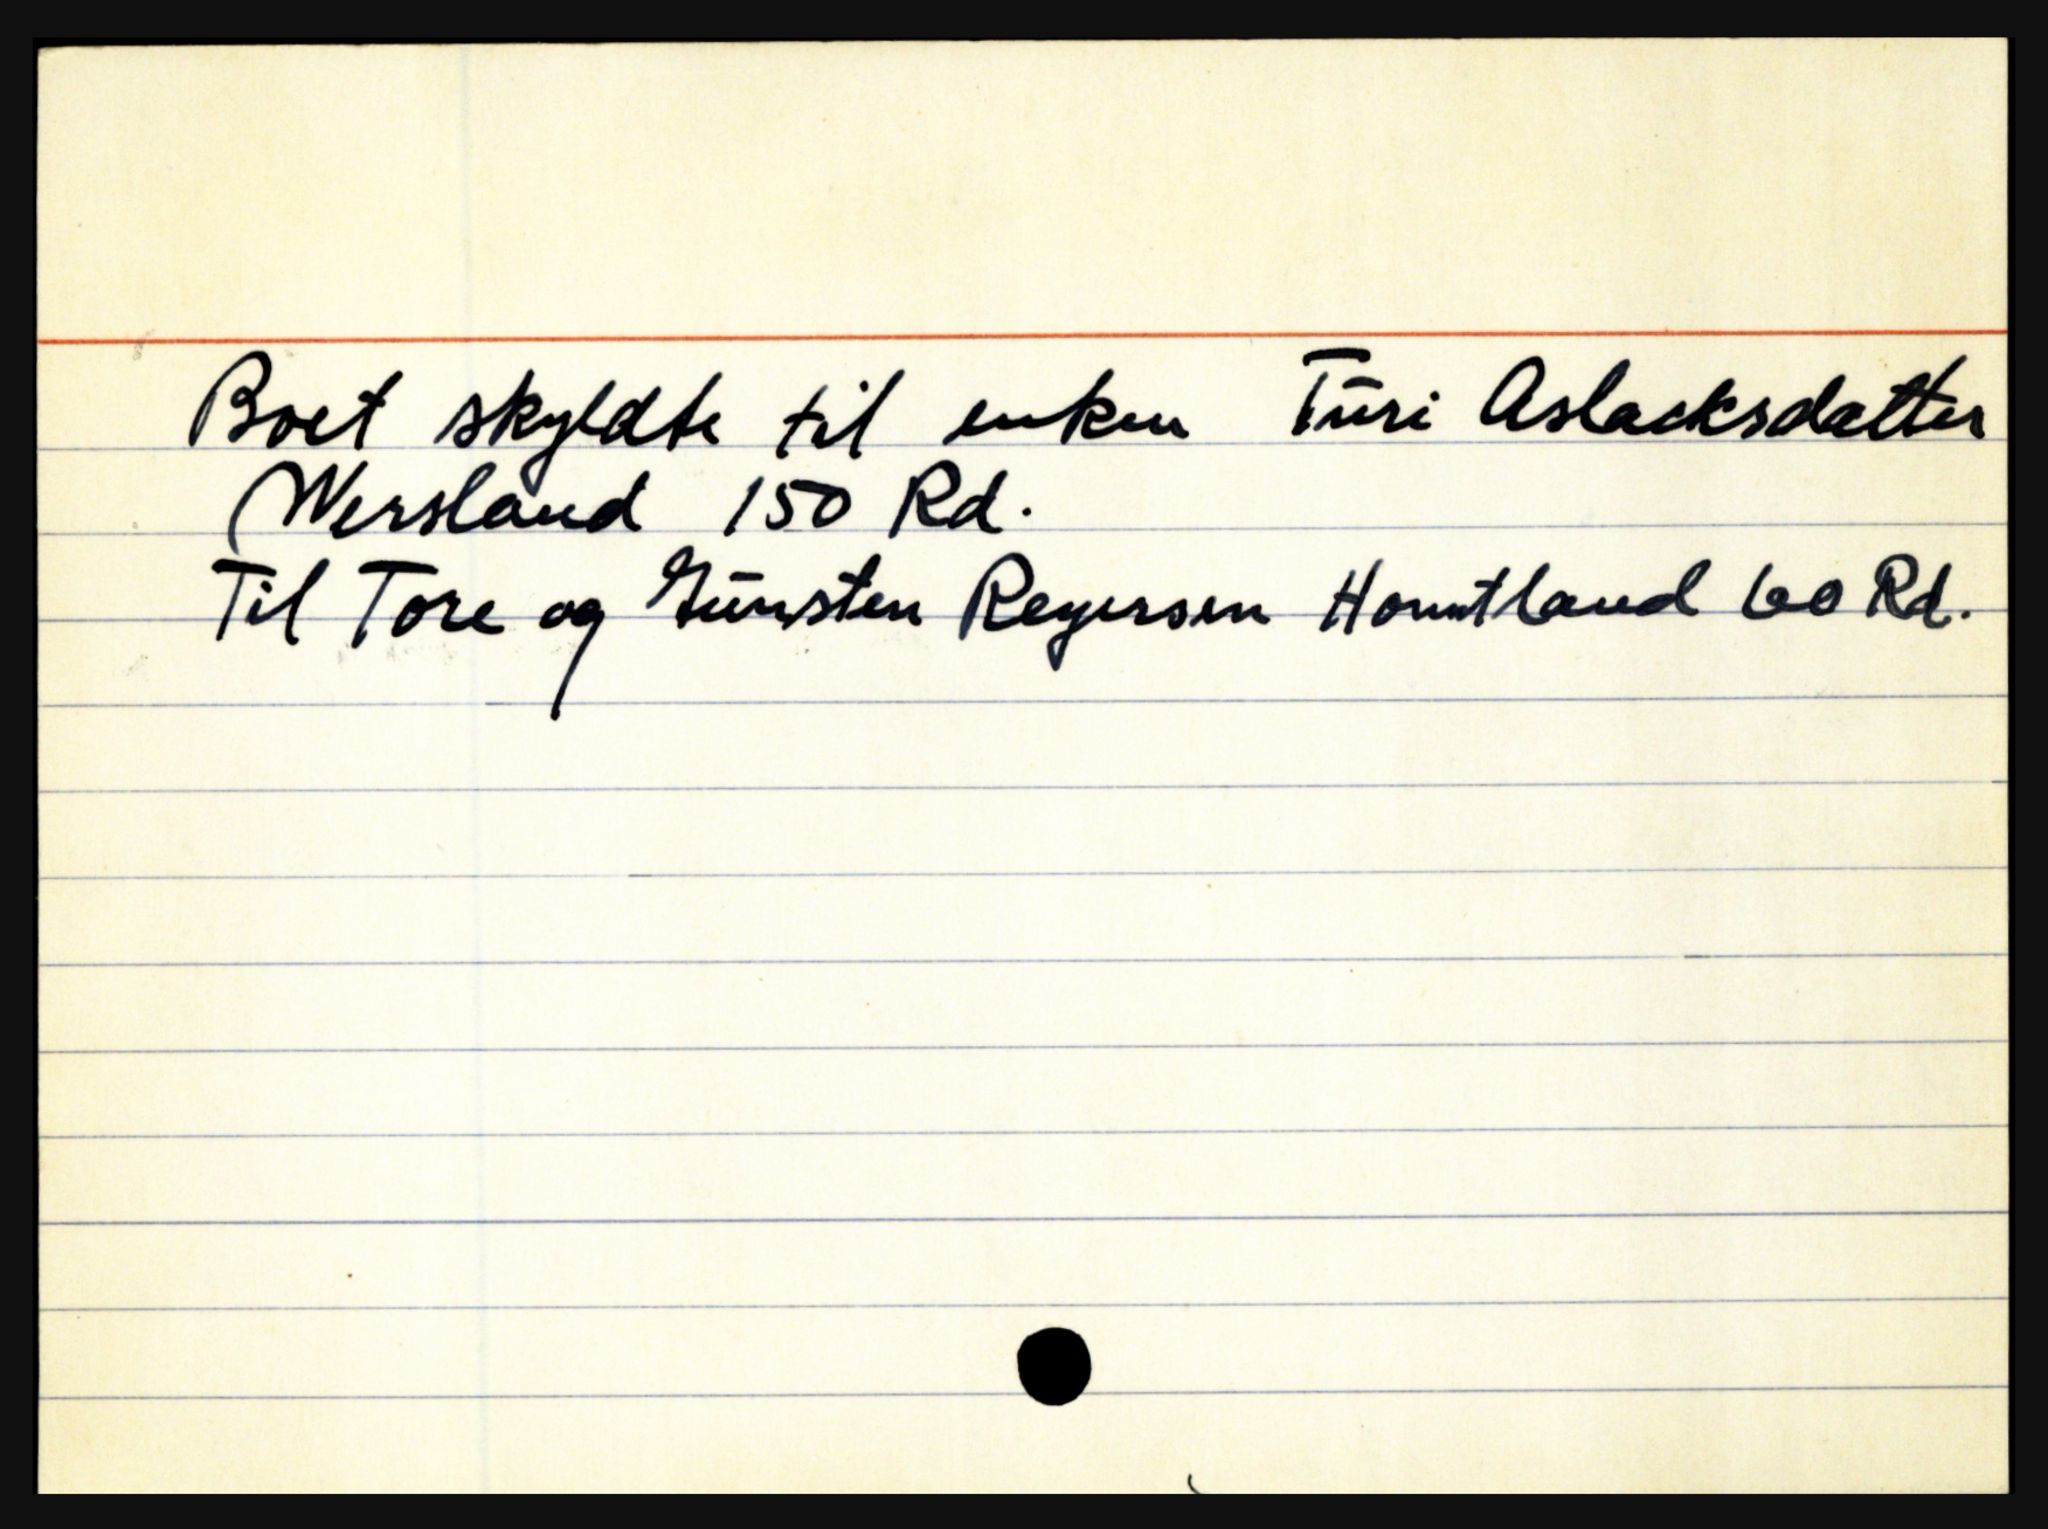 Boet skyldte til enken Turi Aslacksdatter
Wersland 150 Rd.
Til Tore og Gunsten Reyersen Homtland 60 Rd.